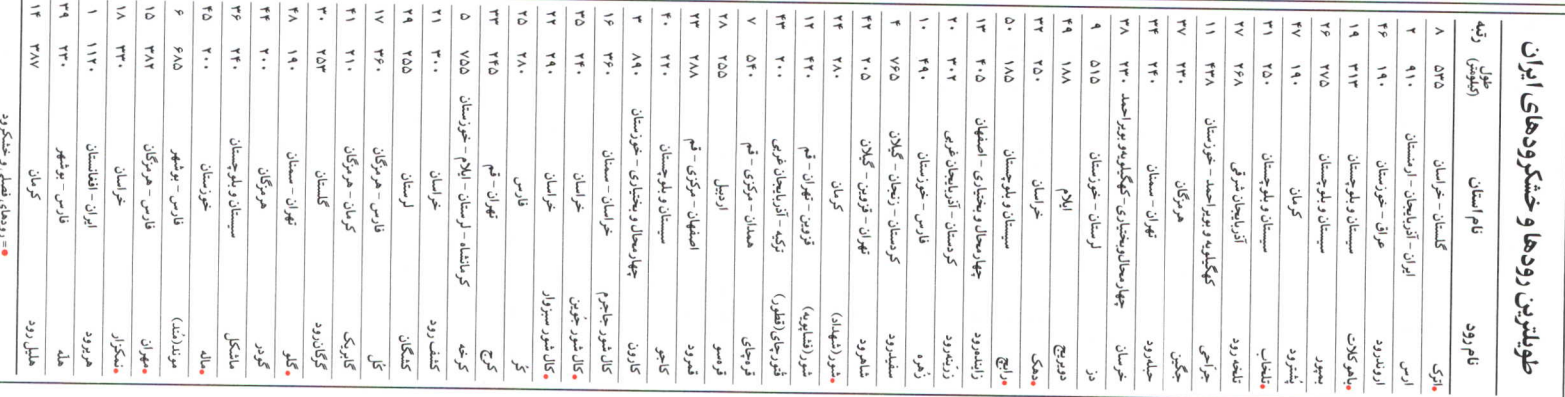 طویلترین رودها و خشکرودهای ایران
نام رود نام استان طول (کیلومتر) رتبه
•اترک گلستان - خراسان ۵۳۵ ۸
ارس ایران - آذربایجان - ارمنستان ۹۱۰ ۲
اروندرود عراق - خوزستان ۱۹۰ ۴۶
•باهوکلات سیستان و بلوچستان ۳۱۳ ۱۹
بمپور سیستان و بلوچستان ۲۷۵ ۲۶
پُشترود کرمان ۱۹۰ ۴۷
•تلخاب سیستان و بلوچستان ۲۵۰ ۳۱
تلخه رود آذربایجان شرقی ۲۶۸ ۲۷
جراحی کهگیلویه و بویراحمد - خوزستان ۴۳۸ ۱۱
جگین هرمزگان ۲۳۰ ۳۷
حبله‌رود تهران - سمنان ۲۴۰ ۳۴
خرسان چهارمحال‌وبختیاری - کهگیلویه‌و بویراحمد ۲۳۰ ۳۸
دز لرستان - خوزستان ۵۱۵ ۹
دویریج ایلام ۱۸۸ ۴۹
•دهک خراسان ۲۵۰ ۳۲
•رابج سیستان و بلوچستان ۱۸۵ ۵۰
زاینده‌رود چهارمحال و بختیاری - اصفهان ۴۰۵ ۱۳
زرّینه‌رود کردستان - آذربایجان غربی ۳۰۲ ۲۰
زُهره فارس - خوزستان ۴۹۰ ۱۰
سفیدرود کردستان - زنجان - گیلان ۷۶۵ ۴
شاهرود تهران - قزوین - گیلان ۲۰۵ ۴۲
•شور(شهداد) کرمان ۲۸۰ ۲۴
شور(فشاپویه) قزوین - تهران - قم ۴۲۰ ۱۲
قتورچای(قطور) ترکیه - آذربایجان غربی ۲۰۰ ۴۳
قره‌چای همدان - مرکزی - قم ۵۴۰ ۷
قره‌سو اردبیل ۲۵۵ ۲۸
قمرود اصفهان - مرکزی - قم ۲۸۸ ۲۳
کاجو سیستان و بلوچستان ۲۲۰ ۴۰
کارون چهارمحال و بختیاری - خوزستان ۸۹۰ ۳
کال شور جاجرم خراسان - سمنان ۳۶۰ ۱۶
•کال شور جُوین خراسان ۲۴۰ ۳۵
•کال شور سبزوار خراسان ۲۹۰ ۲۲
کُر فارس ۲۸۰ ۲۵
کرج تهران - قم ۲۴۵ ۳۳
کرخه کرمانشاه - لرستان - ایلام - خوزستان ۷۵۵ ۵
کشف رود خراسان ۳۰۰ ۲۱
کشگان لرستان ۲۵۵ ۲۹
کُل فارس - هرمزگان ۳۶۰ ۱۷
گابریک کرمان - هرمزگان ۲۱۰ ۴۱
گرگان‌رود گلستان ۲۵۳ ۳۰
•گلو تهران - سمنان ۱۹۰ ۴۸
گودر هرمزگان ۲۰۰ ۴۴
ماشکل سیستان و بلوچستان ۲۴۰ ۳۶
•ماله خوزستان ۲۰۰ ۴۵
موند(مُند) فارس - بوشهر ۶۸۵ ۶
•مهران فارس - هرمزگان ۳۸۲ ۱۵
•نمکزار خراسان ۳۳۰ ۱۸
هریرود ایران - افغانستان ۱۱۲۰ ۱
هلّه فارس - بوشهر ۲۳۰ ۳۹
هلیل رود کرمان ۳۸۷ ۱۴
•= رودهای فصلی و خشکرود